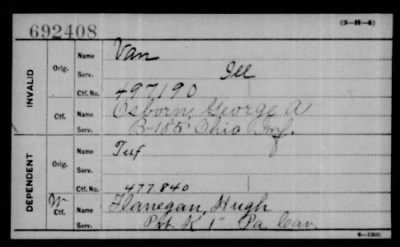 692408
(3-H-4)
INVALID
Orig.
Name Van
Serv. Ill
Ctf. No. 497190
Ctf.
Name Osborn, George A
Serv. B-185" Ohio Inf.
DEPENDENT
Orig.
Name
Serv.
Ctf. No. 477840
W Ctf.
Name Flanegan, Hugh
Serv. Pvt. K 1" Pa Cav.